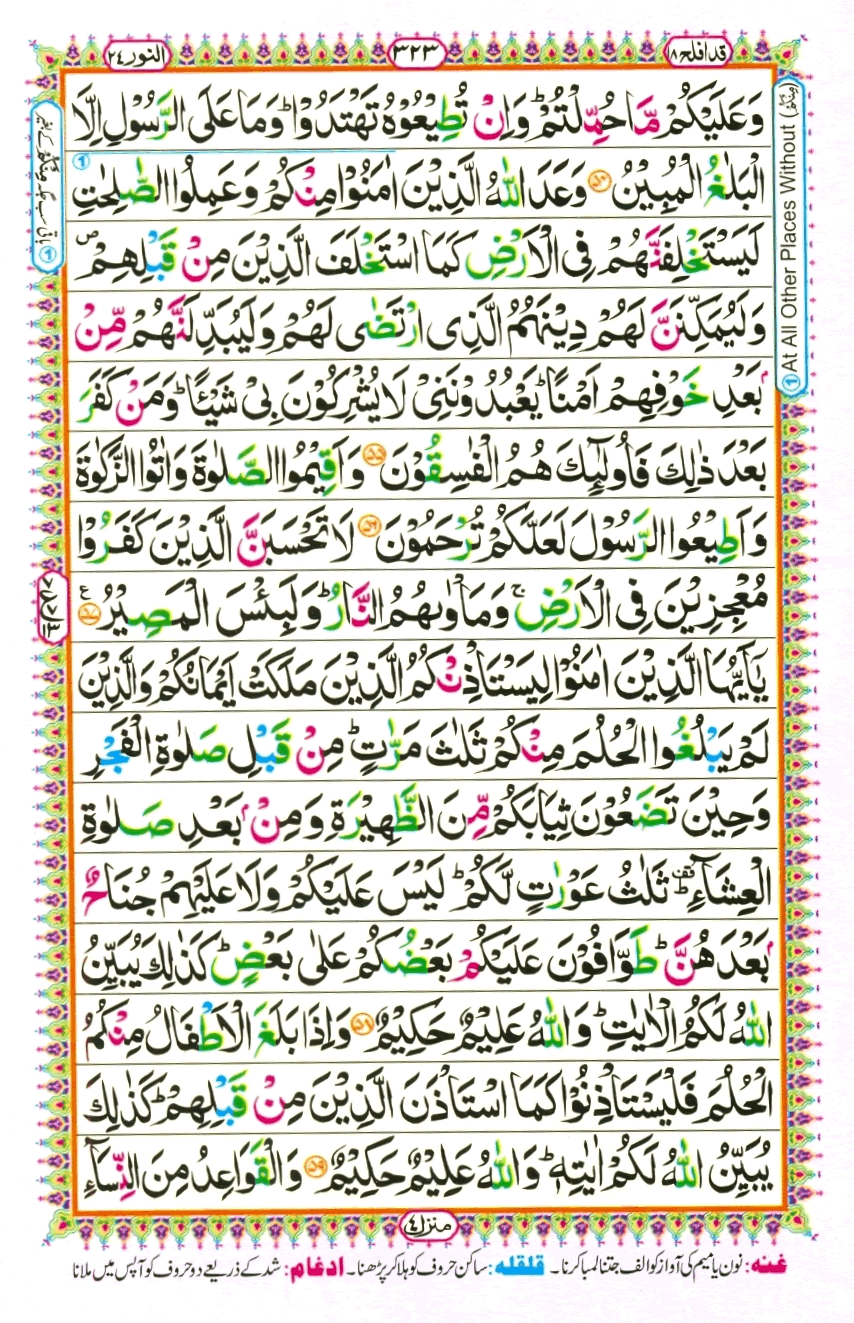 قد افلح ١٨
٣٢٣
النور ٢٤
وَعَلَيْكُمْ مَّا حُمِّلْتُمْ ؕ وَاِنْ تُطِيْعُوْهُ تَهْتَدُوْا ؕ وَمَا عَلَى الرَّسُوْلِ اِلَّا
الْبَلٰغُ الْمُبِيْنُ ﴿۵۴﴾ وَعَدَ اللّٰهُ الَّذِيْنَ اٰمَنُوْا مِنْكُمْ وَعَمِلُوا الصّٰلِحٰتِ
لَيَسْتَخْلِفَنَّهُمْ فِى الْاَرْضِ كَمَا اسْتَخْلَفَ الَّذِيْنَ مِنْ قَبْلِهِمْ ص
وَلَيُمَكِّنَنَّ لَهُمْ دِيْنَهُمُ الَّذِى ارْتَضٰى لَهُمْ وَلَيُبَدِّلَنَّهُمْ مِّنْۢ
بَعْدِ خَوْفِهِمْ اَمْنًا ؕ يَعْبُدُوْنَنِىْ لَا يُشْرِكُوْنَ بِىْ شَيْـًٔا ؕ وَمَنْ كَفَرَ
بَعْدَ ذٰلِكَ فَاُولٰٓئِكَ هُمُ الْفٰسِقُوْنَ ﴿۵۵﴾ وَاَقِيْمُوا الصَّلٰوةَ وَاٰتُوا الزَّكٰوةَ
وَاَطِيْعُوا الرَّسُوْلَ لَعَلَّكُمْ تُرْحَمُوْنَ ﴿۵۶﴾ لَا تَحْسَبَنَّ الَّذِيْنَ كَفَرُوْا
مُعْجِزِيْنَ فِى الْاَرْضِ ۚ وَمَاْوٰىهُمُ النَّارُ ؕ وَلَبِئْسَ الْمَصِيْرُ ﴿۵۷﴾ ع
يٰۤاَيُّهَا الَّذِيْنَ اٰمَنُوْا لِيَسْتَاْذِنْكُمُ الَّذِيْنَ مَلَكَتْ اَيْمَانُكُمْ وَالَّذِيْنَ
لَمْ يَبْلُغُوا الْحُلُمَ مِنْكُمْ ثَلٰثَ مَرّٰتٍ ؕ مِنْ قَبْلِ صَلٰوةِ الْفَجْرِ
وَحِيْنَ تَضَعُوْنَ ثِيَابَكُمْ مِّنَ الظَّهِيْرَةِ وَمِنْۢ بَعْدِ صَلٰوةِ
الْعِشَآءِ ؕ قف ثَلٰثُ عَوْرٰتٍ لَّكُمْ ؕ لَيْسَ عَلَيْكُمْ وَلَا عَلَيْهِمْ جُنَاحٌۢ
بَعْدَهُنَّ ؕ طَوّٰفُوْنَ عَلَيْكُمْ بَعْضُكُمْ عَلٰى بَعْضٍ ؕ كَذٰلِكَ يُبَيِّنُ
اللّٰهُ لَكُمُ الْاٰيٰتِ ؕ وَاللّٰهُ عَلِيْمٌ حَكِيْمٌ ﴿۵۸﴾ وَاِذَا بَلَغَ الْاَطْفَالُ مِنْكُمُ
الْحُلُمَ فَلْيَسْتَاْذِنُوْا كَمَا اسْتَاْذَنَ الَّذِيْنَ مِنْ قَبْلِهِمْ ؕ كَذٰلِكَ
يُبَيِّنُ اللّٰهُ لَكُمْ اٰيٰتِهٖ ؕ وَاللّٰهُ عَلِيْمٌ حَكِيْمٌ ﴿۵۹﴾ وَالْقَوَاعِدُ مِنَ النِّسَآءِ
① At All Other Places Without
منزل ٤
غنه: نون یا میم کی آواز کو الف جتنا لمبا کرنا۔ قلقله: ساکن حروف کو ہلا کر پڑھنا۔ ادغام: شد کے ذریعے دو حروف کو آپس میں ملانا